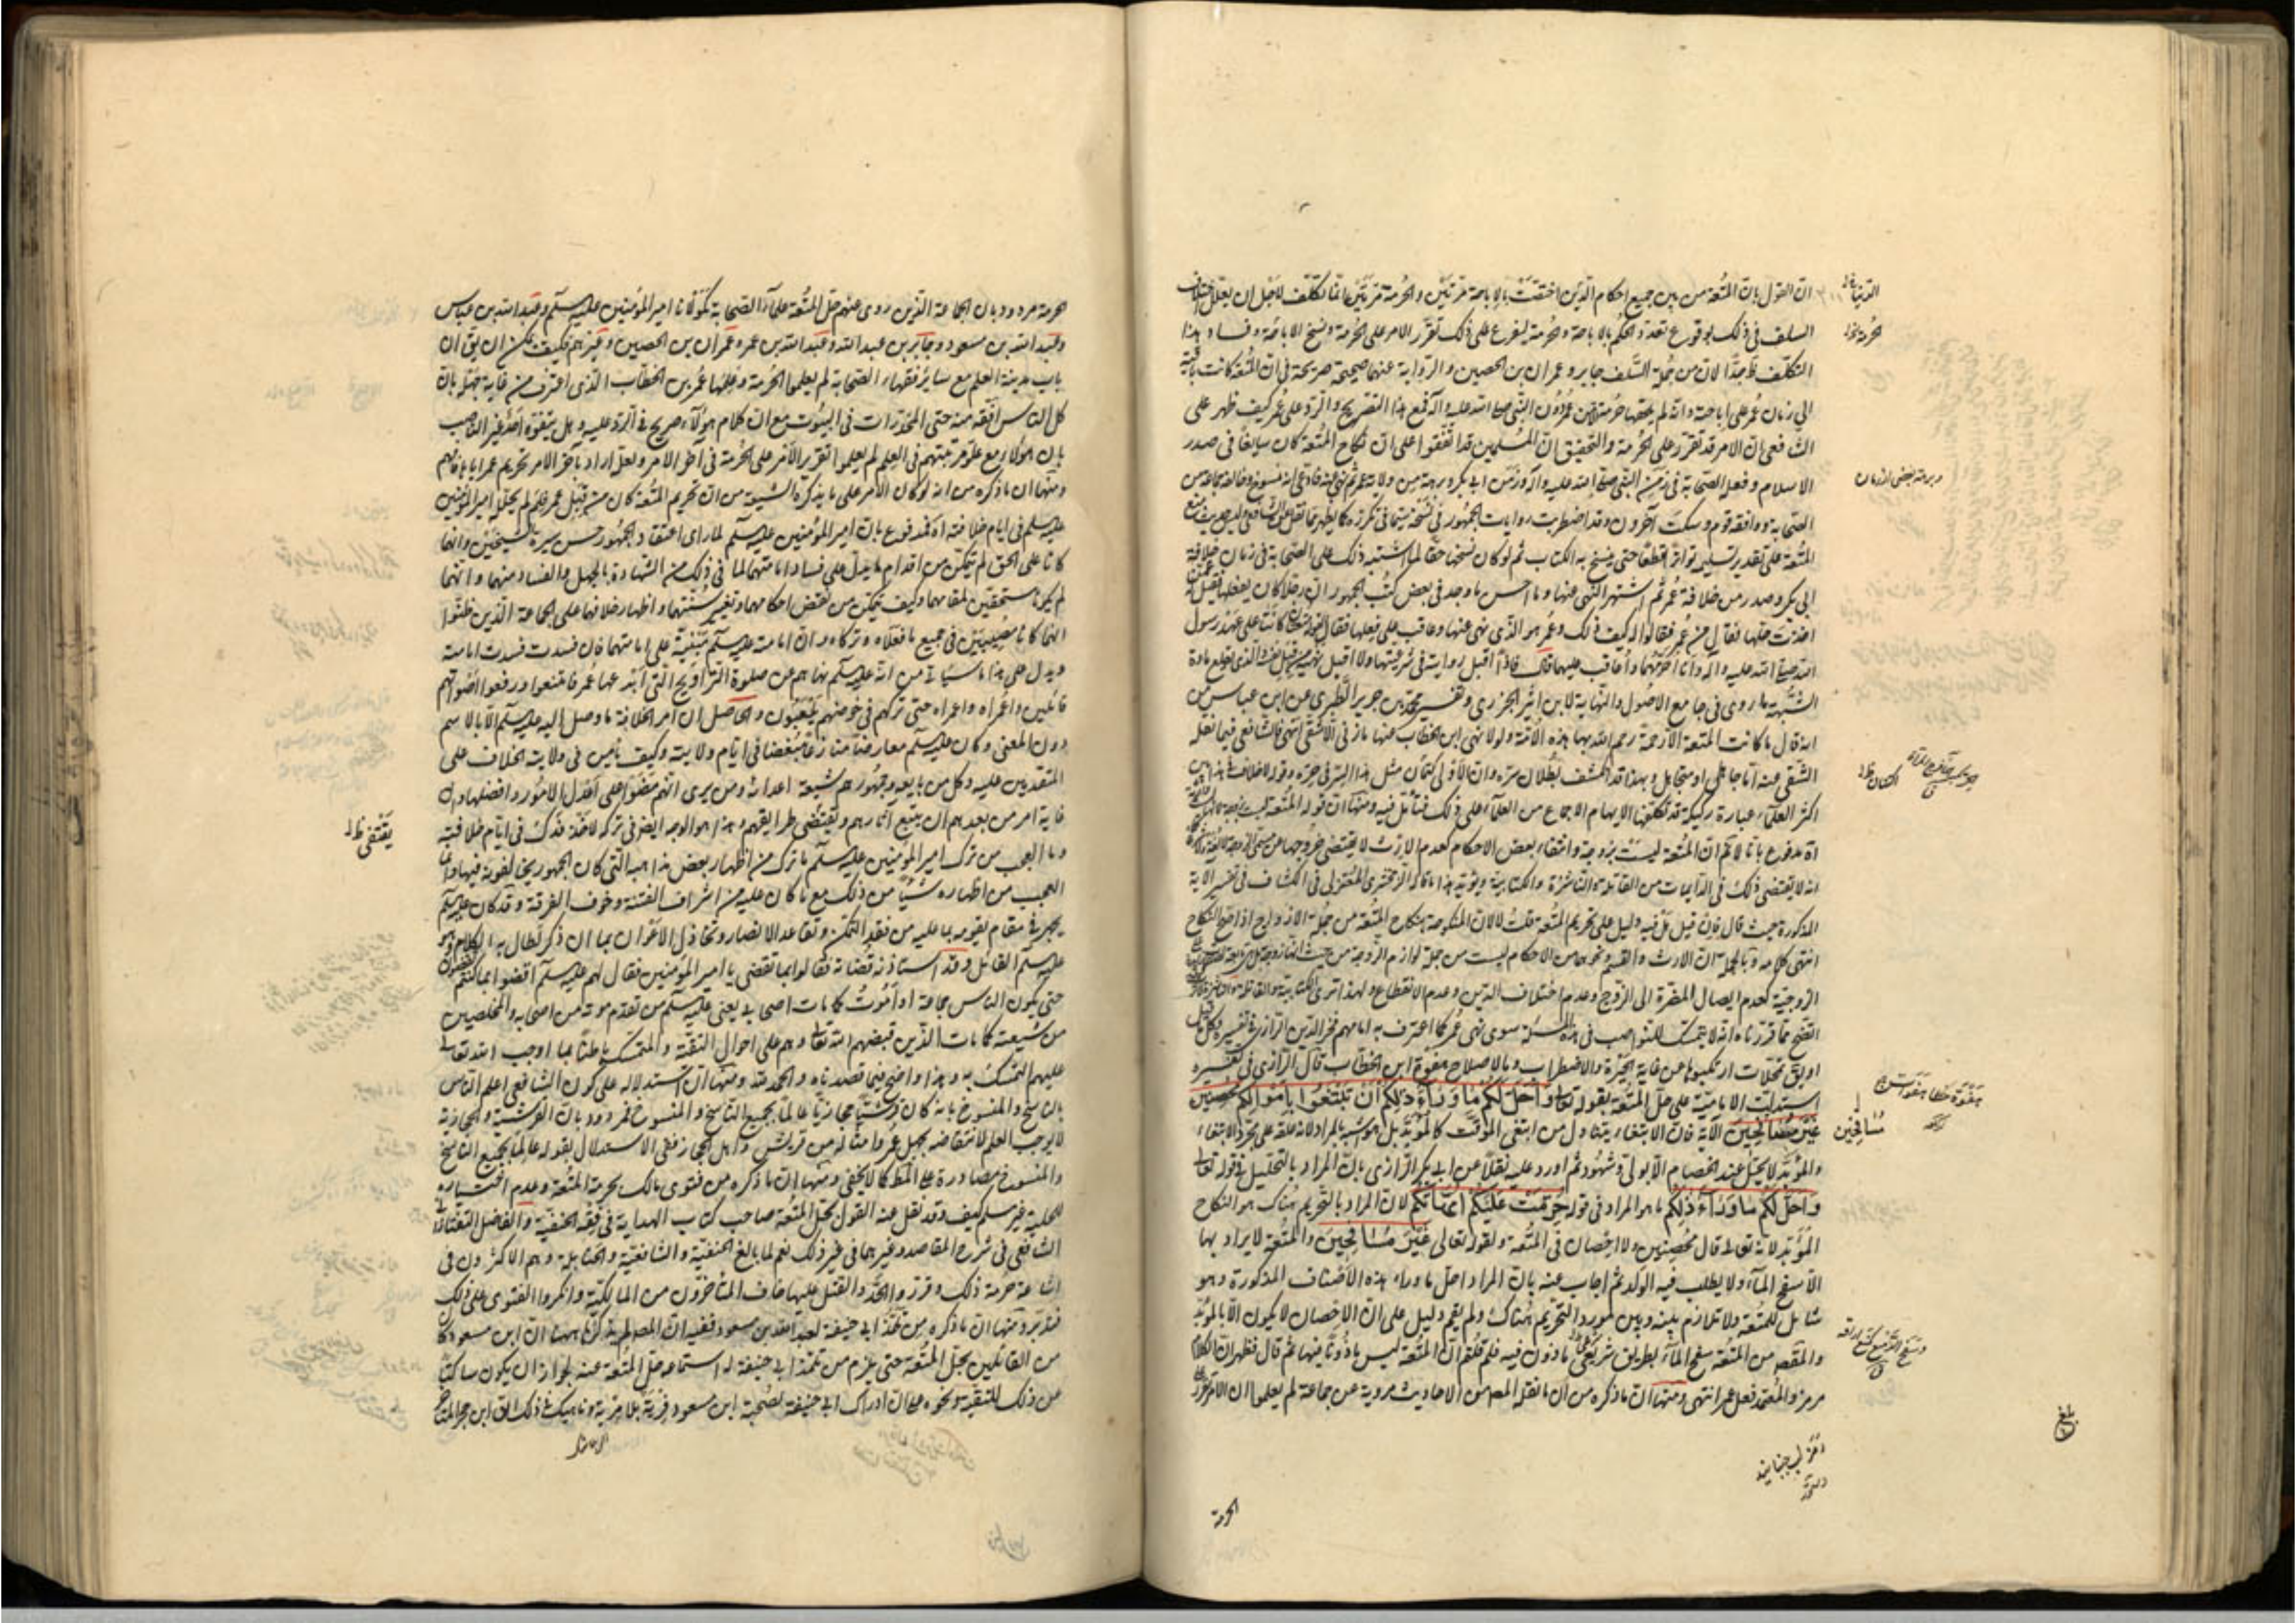 ان القول بان المتعة من بين جميع احكام الدين اختصت بالاباحة مرتين والحرمة مرتين انما تكلف لاجل ان يعلل اختلاف
السلف في ذلك بوقوع تعدد الحكم بالاباحة والحرمة ليفرع على ذلك تقرر الامر على الحرمة ونسخ الاباحة وفساد هذا
التكلف ظ جدا لان من جملة السلف جابر وعمران بن الحصين والرواية عنهما صحيحة صريحة في ان المتعة كانت باقية
الى زمان عمر على اباحته وانه لم يلحقها حرمة من عمر دون النبي صلى الله عليه وآله فمع هذا التصريح والرد على عمر كيف ظهر على
الشافعي ان الامر قد تقرر على الحرمة والتحقيق ان المسلمين قد اتفقوا على ان نكاح المتعة كان سايغا في صدر
الاسلام وفعله الصحابة في زمن النبي صلى الله عليه وآله وزمن ابي بكر وبرهة من ولاية عمر ثم نهى عنه فادعى انه منسوخ وخالفه جماعة من
الصحابة ووافقه قوم وسكت آخرون وقد اضطربت روايات الجمهور في نسخه
المتعة على تقدير تسليم تواترا قطعا حتى ينسخ به الكتاب ثم لو كان نسخها حقا لما اشتبه ذلك على الصحابة في زمان خلافة
ابي بكر وصدر من خلافة عمر ثم اشتهر النهي عنها وما احسن ما وجد في بعض كتب الجمهور ان رجلا كان يفعلها فقيل له عمن
اخذت حلها فقال من عمر فقالوا له كيف ذلك وعمر هو الذي نهى عنها وعاقب على فعلها فقال لقوله متعتان كانتا على عهد رسول
الله صلى الله عليه وآله وانا احرمهما واعاقب عليهما قال فانا اقبل روايته في شرعيتها ولا اقبل نهيه من قبل نفسه والذي يقلع مادة
الشبهة ما روى في جامع الاصول والنهاية لابن اثير الجزري وتفسير محمد بن جرير الطبري عن ابن عباس من
انه قال ما كانت المتعة الا رحمة رحم الله بها هذه الامة ولولا نهي ابن الخطاب عنها ما زنى الا شقى انتهى فالشافعي فيما نقله
الشقي عنه اما جاهل او متجاهل وبهذا قد انكشف بطلان سره وان الاولى كتمان مثل هذا السر في حره وقوله لا خلاف في هذا بين
اكثر العلماء عبارة ركيكة قد تكلفها لايهام الاجماع من العلماء على ذلك فتأمل فيه ومنها ان قوله المتعة ليست بزوجة
اه مدفوع بانا لا نم ان المتعة ليست بزوجة وانتفاء بعض الاحكام كعدم الارث لا يقتضى خروجها عن مسمى الزوجة
انه لا يقتضى ذلك في الدايمات من القاتلة والناشزة والكتابية ويؤيد هذا ما قاله الزمخشري المعتزلي في الكشاف في تفسير الاية
المذكورة حيث قال فان قيل هل فيه دليل على تحريم المتعة قلت لا لان المنكوحة بنكاح المتعة من جملة الازواج اذا صح النكاح
انتهى كلامه وبالجملة ان الارث والقسم ونحوهما من الاحكام ليست من جملة لوازم الزوجة من حيث انها زوجة
الزوجية كعدم ايصال المضرة الى الزوج وعدم اختلاف الدين وعدم الانقطاع ولهذا ترى الكتابية والقاتلة
اتضح مما قررناه انه لا متمسك للنواصب في هذه المسئلة سوى نهي عمر كما اعترف به امامهم فخر الدين الرازي في تفسيره
او بق تمحلات ارتكبوها عن غاية الحيرة والاضطراب وبالاصلاح هفوة ابن الخطاب قال الرازي في تفسيره
استدلت الامامية على حل المتعة بقوله تعالى واحل لكم ما وراء ذلكم ان تبتغوا باموالكم محصنين
غير مسافحين الآية فان الابتغاء يتناول من ابتغى الموقت كالمؤبد بل هو اشبه بالمراد لانه علقه على مجرد الابتغاء
والمؤبد لا يحل عند الخصام الا بولي وشهود ثم اورد عليه نقلا عن ابي بكر الرازي بان المراد بالتحليل في قوله تعالى
واحل لكم ما وراء ذلكم ما هو المراد في قوله حرمت عليكم امهاتكم لان المراد بالتحريم هناك هو النكاح
المؤبد لانه تعالى قال محصنين ولا احصان في المتعة ولقوله تعالى غير مسافحين والمتعة لا يراد بها
الا سفح الماء ولا يطلب فيه الولد ثم اجاب عنه بان المراد احل ما وراء هذه الاصناف المذكورة وهو
شامل للمتعة ولا تلازم بينه وبين مورد التحريم هناك ولم يقم دليل على ان الاحصان لا يكون الا بالمؤبد
والمقصود من المتعة سفح الماء بطريق شرعي ماذون فيه فلم قلتم ان المتعة ليس ماذونا فيها ثم قال فظهر ان الكلام
مرمز والمعتمد فعل عمر انتهى ومنها ان ما ذكره من ان ما نقله المصه من الاحاديث مروية عن جماعة لم يعلموا ان الامر تقرر على
الحرمة
مسافحين
بلغ
الحرمة مردود بان الجماعة الذين روى عنهم حل المتعة علماء الصحابة كمولانا امير المؤمنين عليه السلم وعبد الله بن عباس
وعبد الله بن مسعود وجابر بن عبد الله وعبد الله بن عمر وعمران بن الحصين وغيرهم فكيف يمكن ان يق ان
باب مدينة العلم مع ساير فقهاء الصحابة لم يعلموا الحرمة وعلمها عمر بن الخطاب الذي اعترف من غاية جهله بان
كل الناس افقه منه حتى المخدرات في البيوت مع ان كلام هؤلاء صريح في الرد عليه وهل يتفوه احد غير الناصب
بان هؤلاء مع علو مرتبتهم في العلم لم يعلموا تقرير الامر على الحرمة في آخر الامر ولعل اراد بآخر الامر تحريم عمر اياها فافهم
ومنها ان ما ذكره من انه لو كان الامر على ما يذكره الشيعة من ان تحريم المتعة كان من قبل عمر فلم لم يحلله امير المؤمنين
عليه السلم في ايام خلافته اه فمدفوع بان امير المؤمنين عليه السلم لما راى اعتقاد الجمهور حسن سيرة الشيخين وانهما
كانا على الحق لم يتمكن من اقدام ما يدل على فساد امامتهما لما في ذلك من الشهادة بالجهل والفساد منهما وانهما
لم يكونا مستحقين لمقامهما وكيف يتمكن من نقض احكامهما وتغيير سنتهما واظهار خلافهما على الجماعة الذين ظنوا
انهما كانا مصيبين في جميع ما فعلاه وتركاه وان امامته عليه السلم مبنية على امامتهما فان فسدت فسدت امامته
ويدل على هذا ما سياتي من انه عليه السلم نهاهم عن صلوة التراويح التي ابتدعها عمر فامتنعوا ورفعوا اصواتهم
قائلين واعمراه واعمراه حتى تركهم في خوضهم يلعبون والحاصل ان امر الخلافة ما وصل اليه عليه السلم الا بالاسم
دون المعنى وكان عليه السلم معارضا منازعا مبغضا في ايام ولايته وكيف يأمن في ولايته الخلاف على
المتقدمين عليه وكل من بايعه وجمهورهم شيعة اعدائه ومن يرى انهم مضوا على اعدل الامور وافضلها وان
غاية امر من بعدهم ان يتبع آثارهم ويقتضى طرايقهم وهذا هو الوجه ايضا في تركه لاخذ فدك في ايام خلافته
وما العجب من ترك امير المؤمنين عليه السلم ما ترك من اظهار بعض مذاهبه التي كان الجمهور يخالفونه فيها وانما
العجب من اظهاره شيئا من ذلك مع ما كان عليه من اشراف الفتنة وخوف الفرقة وقد كان عليه السلم
يجهر في مقام يقومه بما عليه من فقد التمكن وتقاعد الانصار وتخاذل الاعوان بما ان ذكر لطال به الكلام وهو
عليه السلم القائل وقد استاذنه قضاته فقالوا بما نقضى يا امير المؤمنين فقال لهم عليه السلم اقضوا بما كنتم تقضون
حتى يكون الناس جماعة او اموت كما مات اصحابي يعني عليه السلم من تقدم موته من اصحابه والمخلصين
من شيعته كما مات الذين قبضهم الله تعالى وهم على احوال التقية والمتمسك باطنا بما اوجب الله تعالى
عليهم التمسك به وهذا واضح فيما قصدناه والحمد لله ومنها ان استدلاله على كون الشافعي اعلم الناس
بالناسخ والمنسوخ بانه كان قرشيا حجازيا عالما بجميع الناسخ والمنسوخ فمردود بان القرشية والحجازية
لا يوجب العلم لانتقاضه بجهل عمر وامثاله من قريش واهل الحجاز فبقى الاستدلال بقوله عالما بجميع الناسخ
والمنسوخ مصادرة على المط كما لا يخفى ومنها ان ما ذكره من فتوى مالك بحرمة المتعة وعدم اختياره
للحلية غير مسلم كيف وقد نقل عنه القول بحل المتعة صاحب كتاب الهداية في فقه الحنفية والفاضل التفتازاني
الشافعي في شرح المقاصد وغيرهما في غير ذلك نعم لما بالغ الحنفية والشافعية والحنابلة وهم الاكثرون في
اشاعة حرمة ذلك وقرروا الحد والقتل عليها خاف المتاخرون من المالكية وانكروا الفتوى على ذلك
فتدبر ومنها ان ما ذكره من تلمذ ابي حنيفة لعبد الله بن مسعود ففيه ان المصه لم يذكر ههنا ان ابن مسعود كان
من القائلين بحل المتعة حتى يلزم من تلمذ ابي حنيفة له استماعه حل المتعة عنه لجواز ان يكون ساكتا
عن ذلك للتقية ونحوه على ان ادراك ابي حنيفة لصحبة ابن مسعود فرية بلا مرية وناهيك في ذلك ان ابن حجر المتاخر